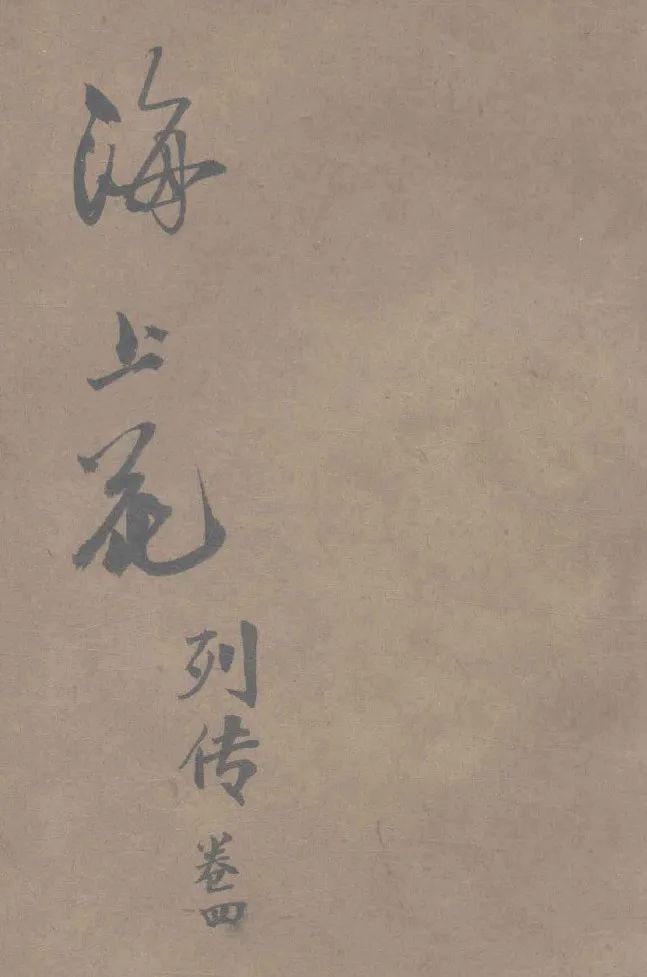 海上花
列传
卷四